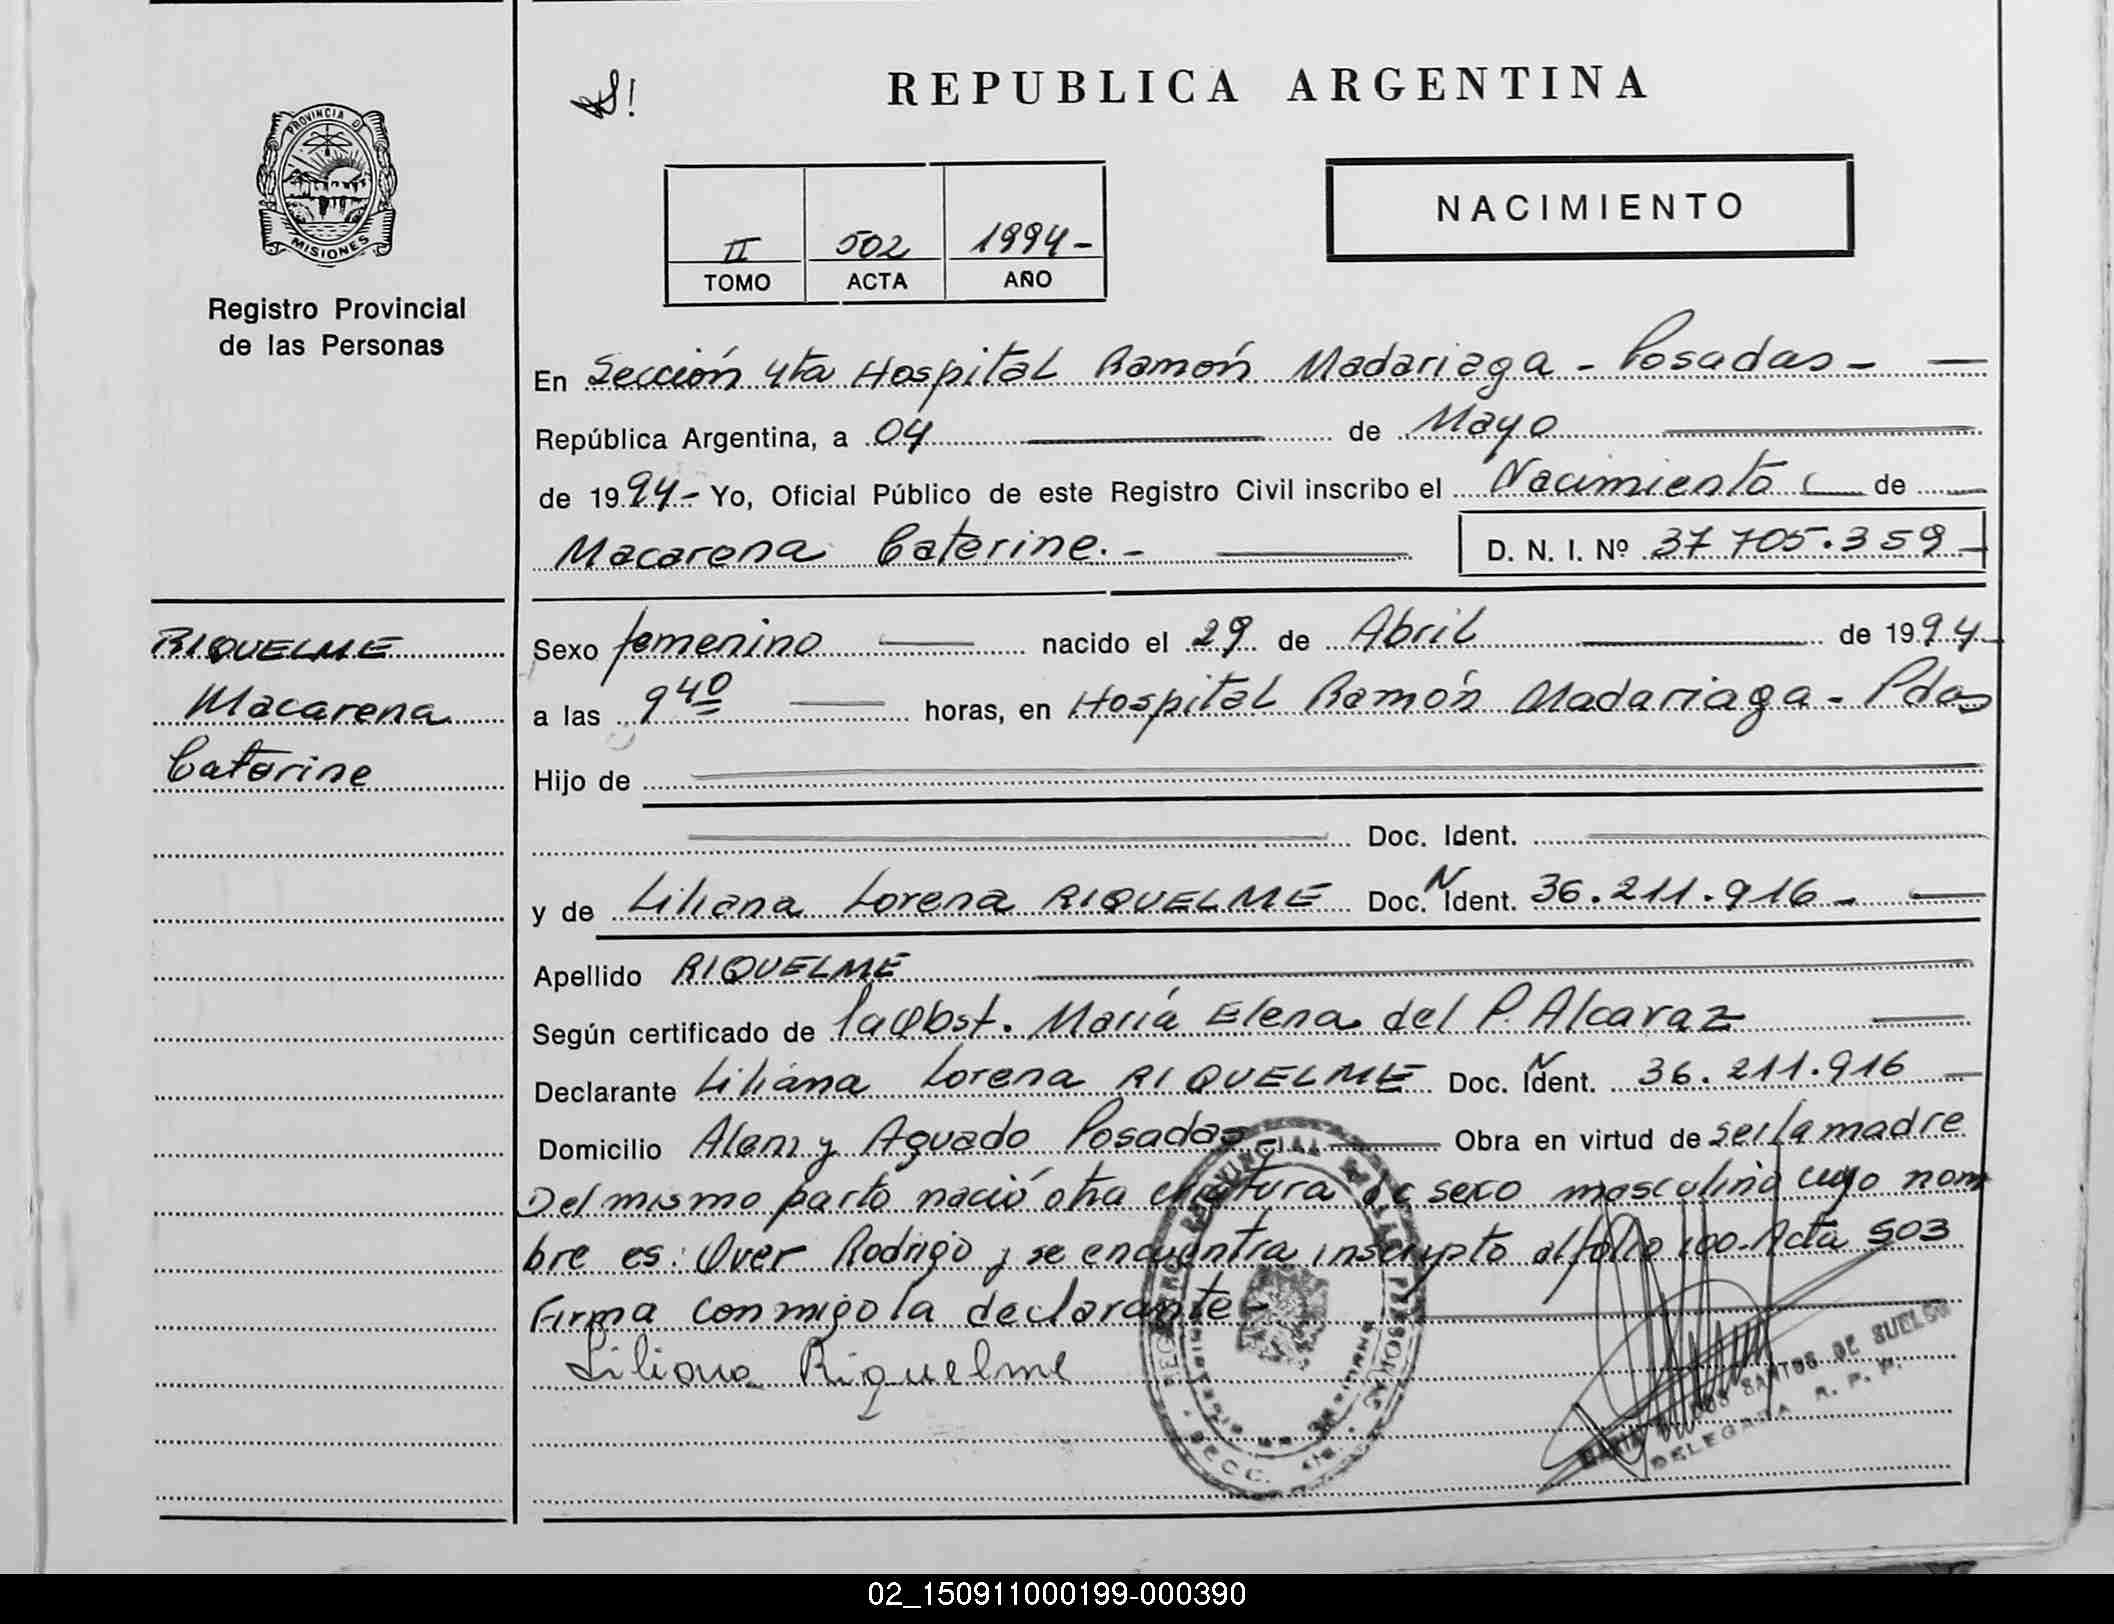 REPUBLICA ARGENTINA
PROVINCIA DE
MISIONES
Registro Provincial
de las Personas
II 502 1994-
TOMO ACTA AÑO
NACIMIENTO
En Sección 4ta Hospital Ramón Madariaga - Posadas -
República Argentina, a 04 de Mayo
de 1994.- Yo, Oficial Público de este Registro Civil inscribo el Nacimiento de
Macarena Caterine.-
D. N. I. Nº 37 705.359
RIQUELME
Macarena
Caterine
Sexo femenino nacido el 29 de Abril de 1994
a las 9 40 horas, en Hospital Ramón Madariaga - Pdas
Hijo de
Doc. Ident.
y de Liliana Lorena RIQUELME Doc. N Ident. 36.211.916-
Apellido RIQUELME
Según certificado de la Obst. María Elena del P. Alcaraz
Declarante Liliana Lorena RIQUELME Doc. N Ident. 36.211.916
Domicilio Alem y Aguado Posadas- Obra en virtud de ser la madre
Del mismo parto nació otra criatura de sexo masculino cuyo nom
bre es: Over Rodrigo y se encuentra inscripto al folio 100-Acta 503
Firma conmigo la declarante-
Liliana Riquelme
DOS SANTOS DE SUELDO
DELEGADA R. P. P.
02_150911000199-000390